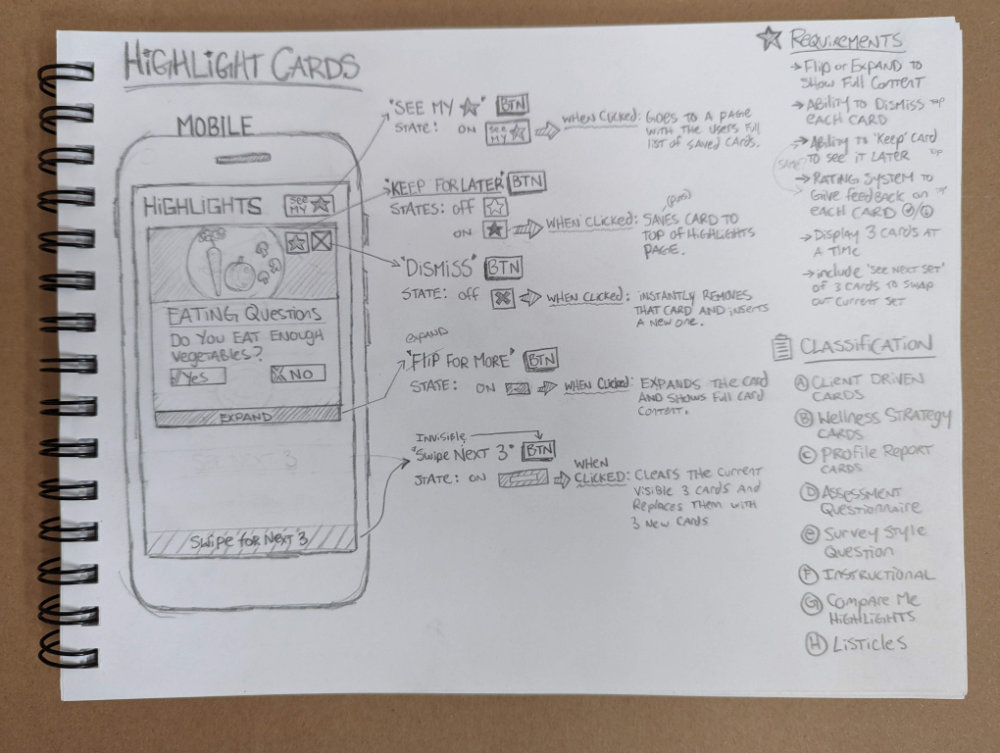 HIGHLIGHT CARDS
MOBILE
HIGHLIGHTS
SEE
MY
EATING QUESTIONS
DO YOU EAT ENOUGH
VEGETABLES?
YES
NO
EXPAND
SWIPE FOR NEXT 3
"SEE MY ☆" BTN
STATE: ON SEE MY ☆ WHEN CLICKED: GOES TO A PAGE
WITH THE USERS FULL
LIST OF SAVED CARDS.
"KEEP FOR LATER" BTN
STATES: OFF
ON WHEN CLICKED: SAVES CARD TO
TOP OF HIGHLIGHTS
PAGE.
"DISMISS" BTN
STATE: OFF WHEN CLICKED: INSTANTLY REMOVES
THAT CARD AND INSERTS
A NEW ONE.
EXPAND
"FLIP FOR MORE" BTN
STATE: ON WHEN CLICKED: EXPANDS THE CARD
AND SHOWS FULL CARD
CONTENT.
INVISIBLE
"SWIPE NEXT 3" BTN
STATE: ON WHEN
CLICKED: CLEARS THE CURRENT
VISIBLE 3 CARDS AND
REPLACES THEM WITH
3 NEW CARDS
REQUIREMENTS
FLIP OR EXPAND TO
SHOW FULL CONTENT
ABILITY TO DISMISS
EACH CARD
ABILITY TO 'KEEP' CARD
TO SEE IT LATER
SAME
RATING SYSTEM TO
GIVE FEEDBACK ON
EACH CARD
DISPLAY 3 CARDS AT
A TIME
INCLUDE 'SEE NEXT SET'
OF 3 CARDS TO SWAP
OUT CURRENT SET
CLASSIFICATION
A CLIENT DRIVEN
CARDS
B WELLNESS STRATEGY
CARDS
C PROFILE REPORT
CARDS
D ASSESSMENT
QUESTIONNAIRE
E SURVEY STYLE
QUESTION
F INSTRUCTIONAL
G COMPARE ME
HIGHLIGHTS
H LISTICLES